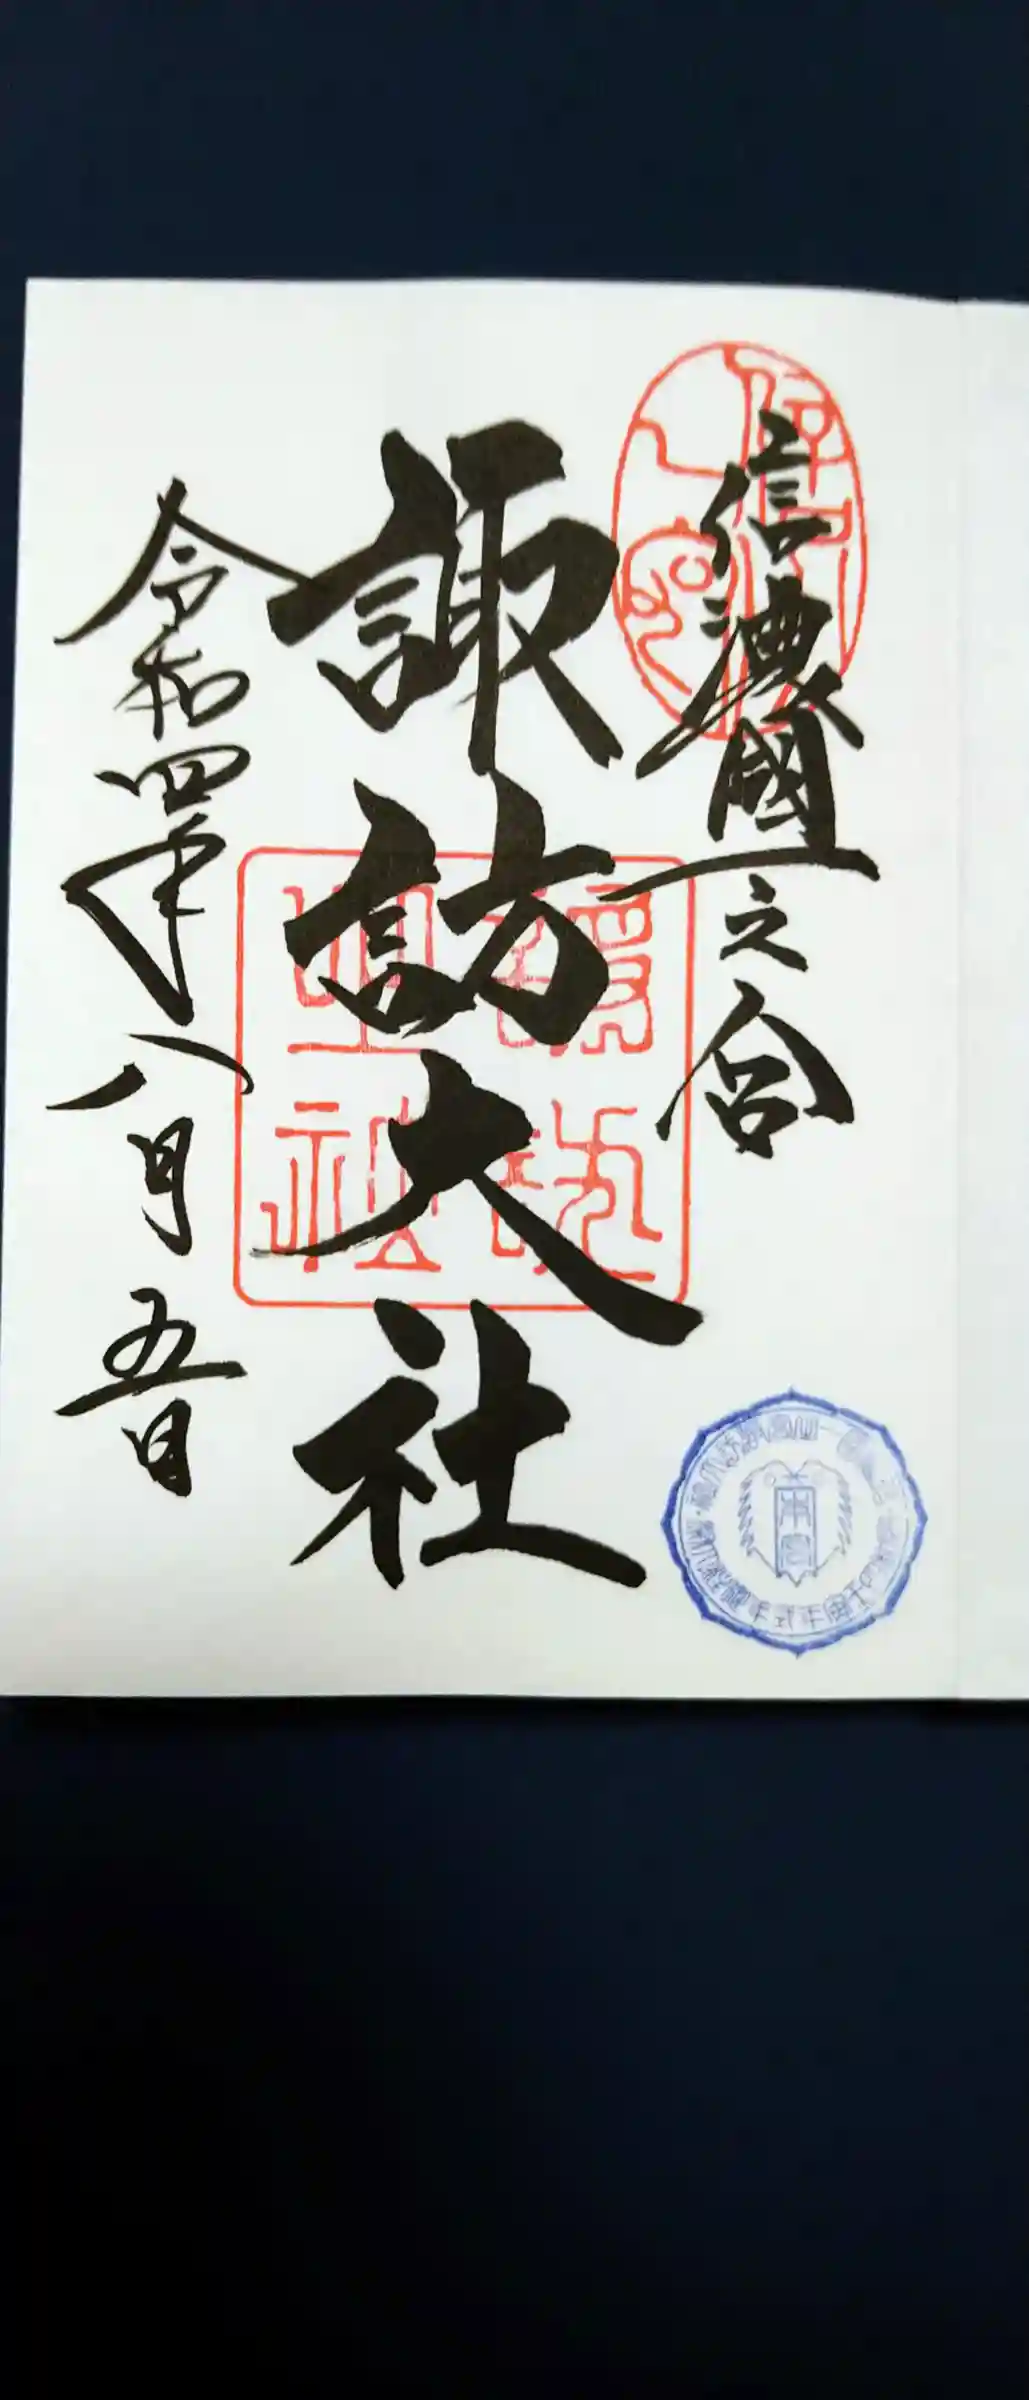 信濃國一之宮
諏訪大社
令和四年八月五日
本宮